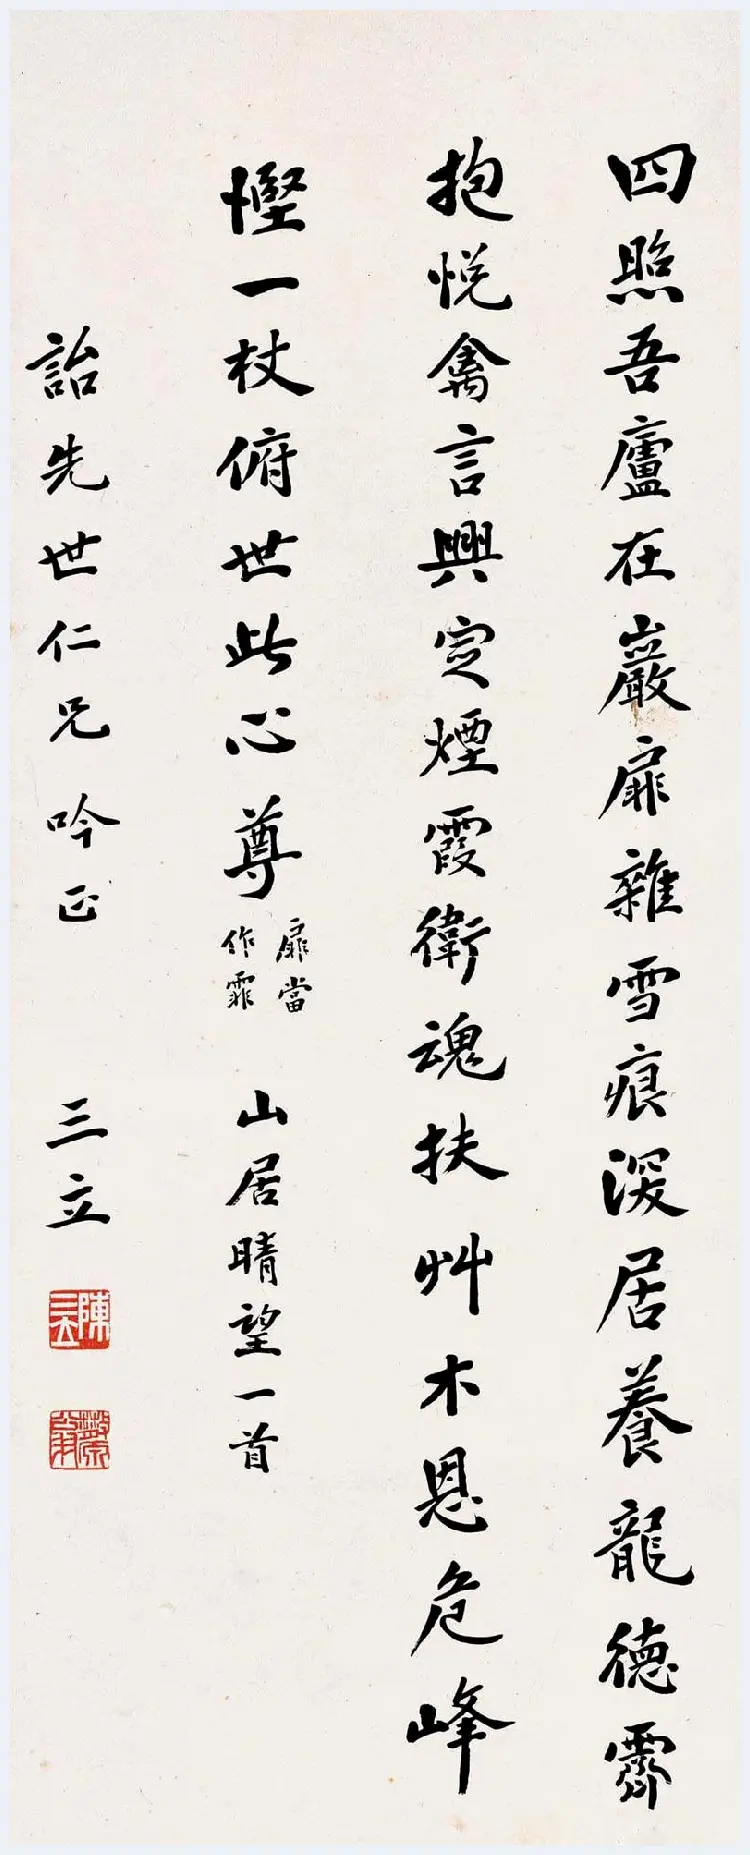 四照吾廬在巖扉雜雪痕深居養龍德霽
抱悅禽言興定煙霞衛魂扶艸木恩危峰
慳一杖俯世此心尊
扉當
作霏
山居晴望一首
詒先世仁兄吟正
三立
陳三立